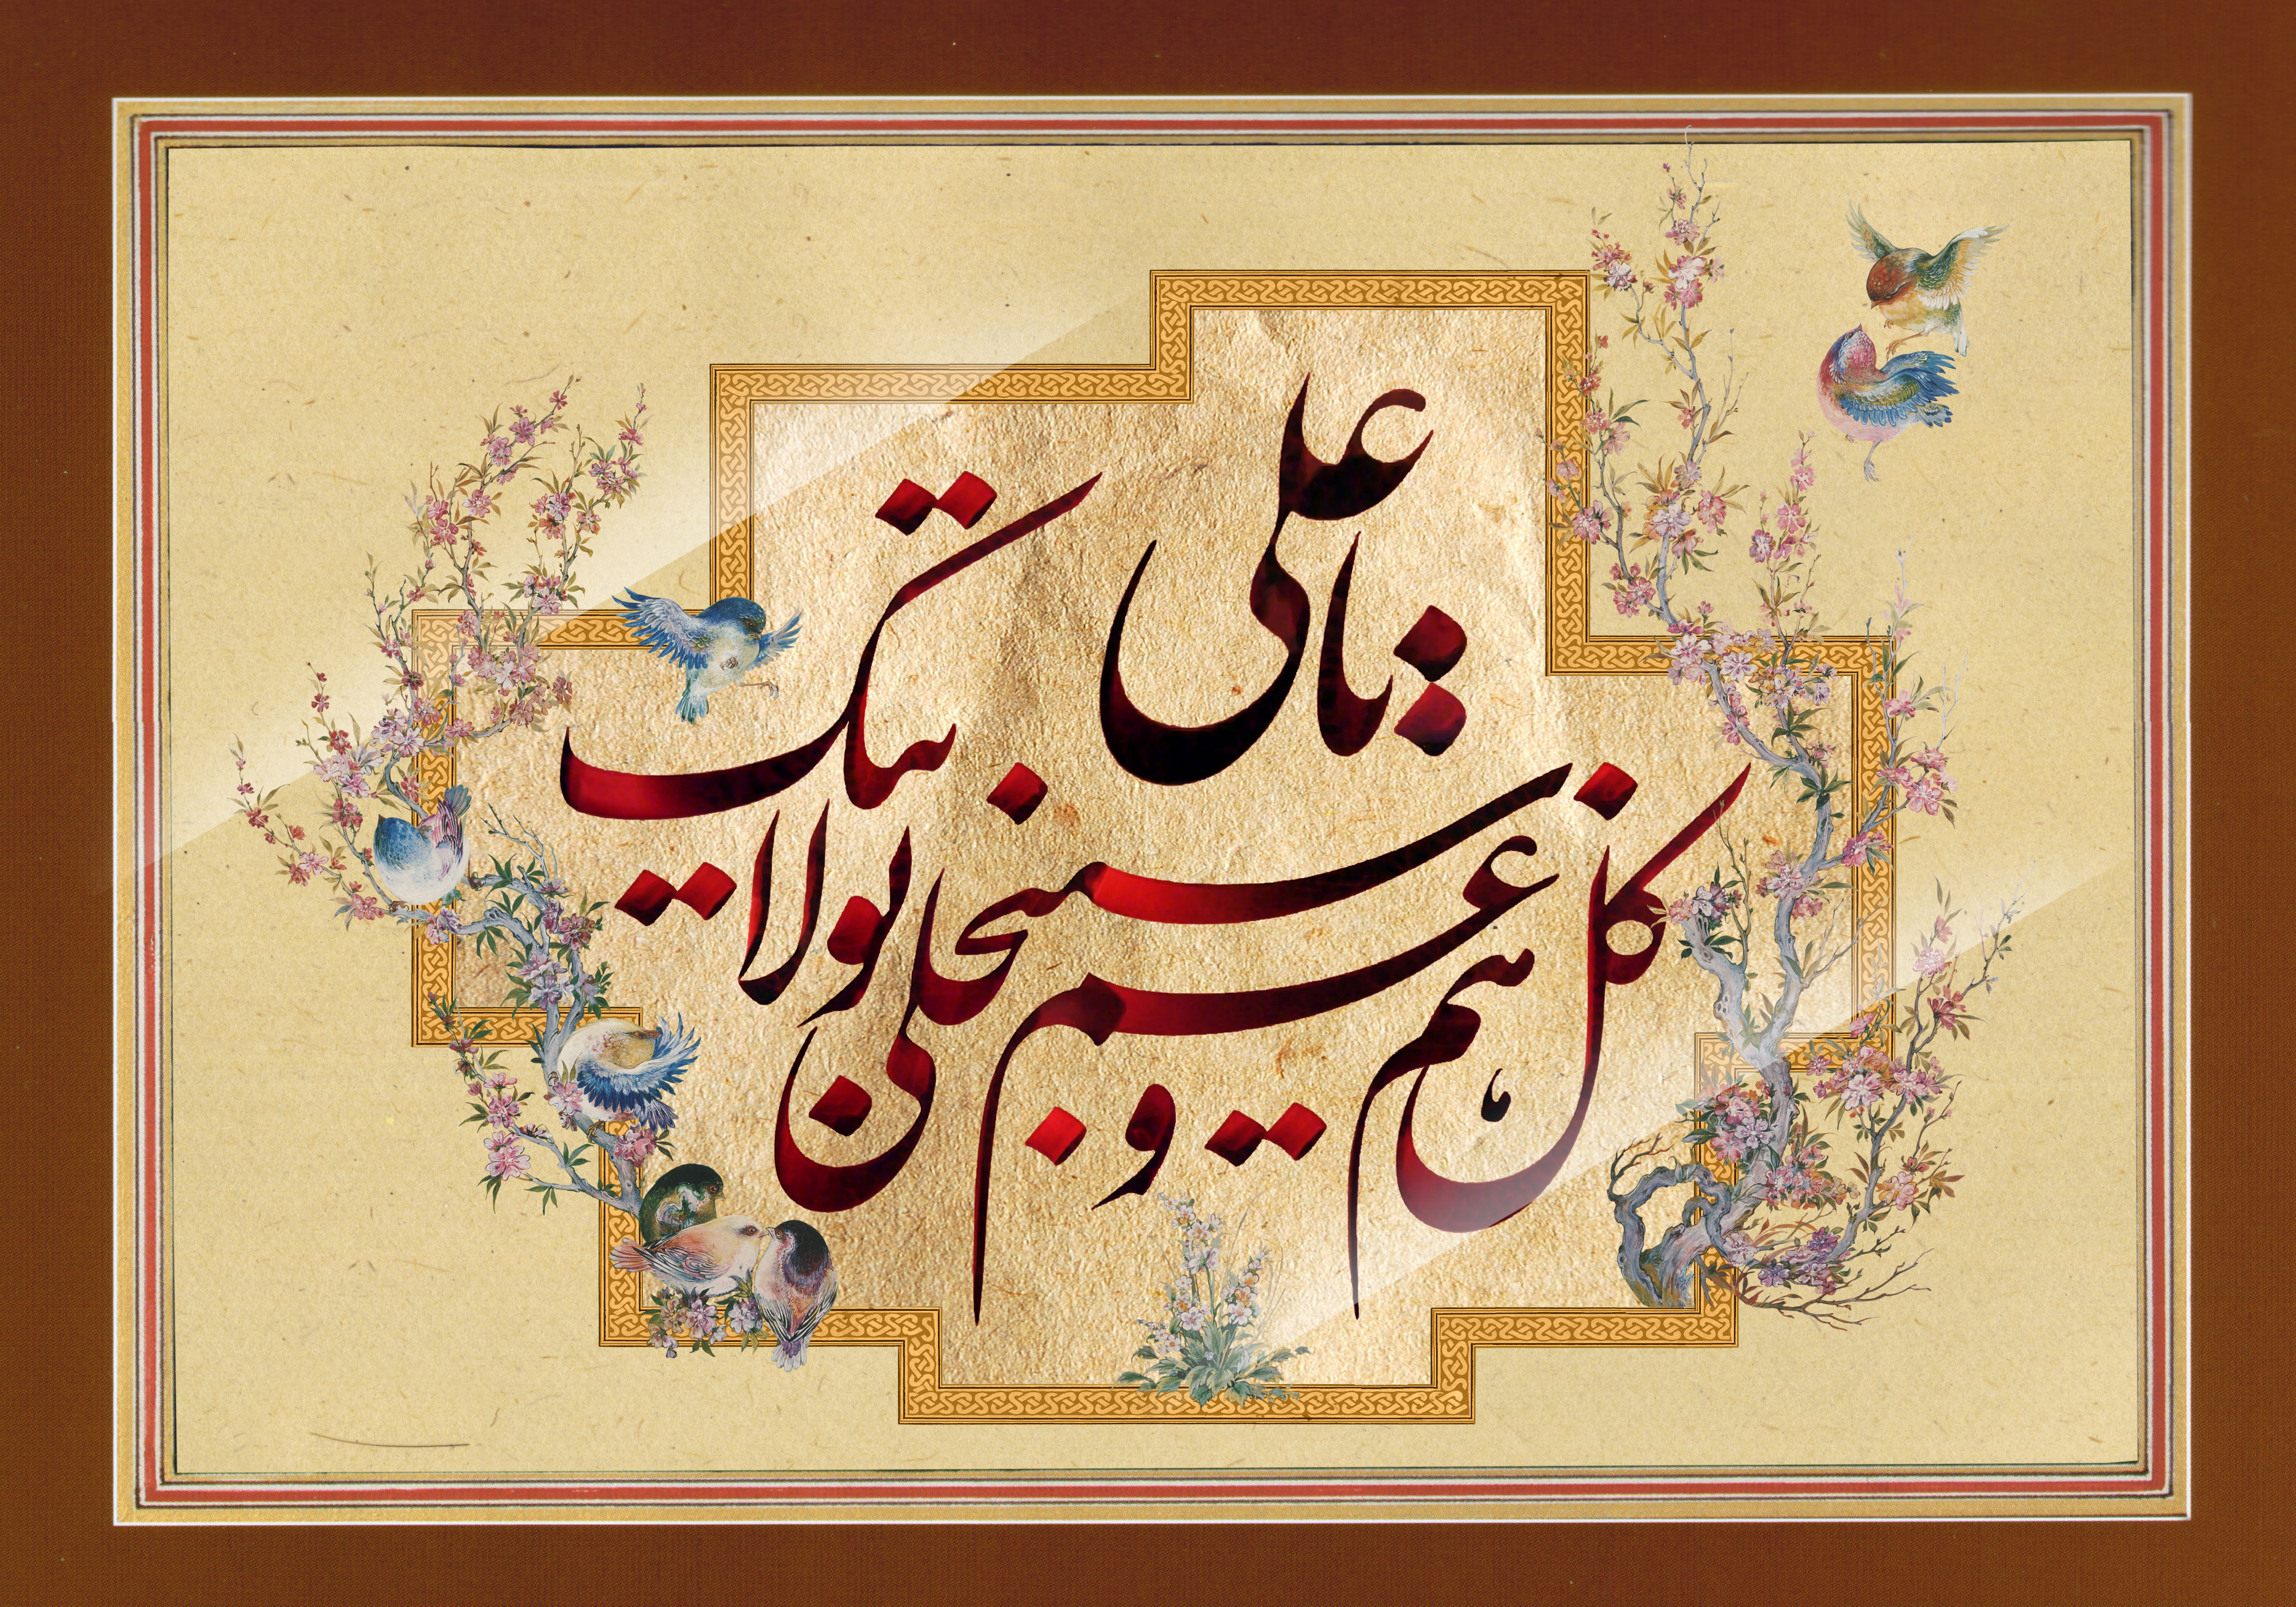 کل هم و غم سینجلی
بولایتک
یا علی